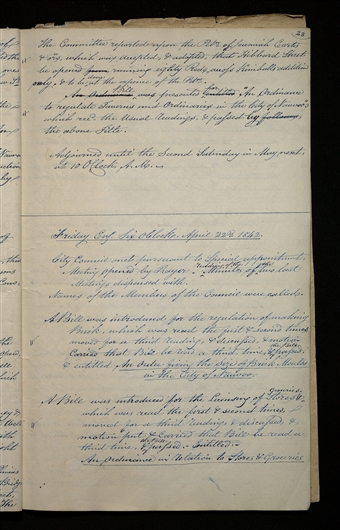 23
The Committee reported upon the Petn. of
& ors, which was accepted, & adopted, that Hibbard Street
be opened running eighty Rods, across Kimball's addition
only, & to be at the expense of the Petrs.
Bill
was presented for "An Ordinance
to regulate Taverns and Ordinaries in the City of Nauvoo"
which recd. the Usual Readings, & passed by
the above Title.
Adjourned until the Second Saturday in May next
at 10 O'Clock A.M.
Friday Eveg. Six O'Clock, April 22d. 1842.
City Council met, pursuant to Special appointment.
Meeting opened by Prayer. Minutes of two last
Meetings dispensed with.
Names of the Members of the Council were called.
A Bill was introduced for the regulation of making
Brick, which was read the first & second times
moved for a third reading, & discussed, & motion
Carried that Bill be read a third time, & passed.
& entitled An Order fixing the size of Brick Moulds
in the City of Nauvoo.
groceries.
A Bill was introduced for the licensing of Stores &c.
which was read the first & second times,
moved for a third reading & discussed, &
motion put & Carried that Bill be read a
third time. & passed. entitled
An Ordinance in Relation to Stores & Groceries